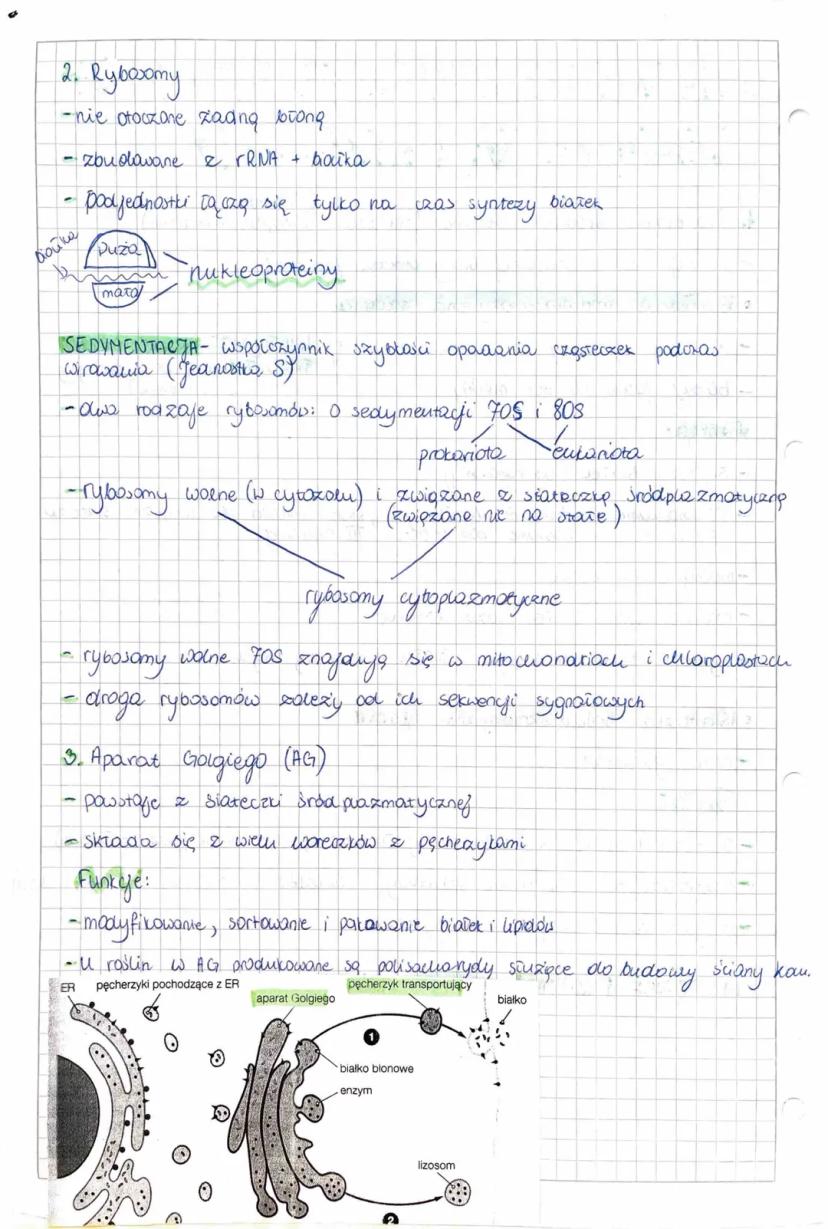 2. Rybosomy
- nie otoczone żadną błoną
- zbudowane z rRNA + białka
- podjednostki łączą się tylko na czas syntezy białek
białka
Duża
mała
nukleoproteiny
SEDYMENTACJA - współczynnik szybkości opadania cząsteczek podczas
wirowania (jednostka S)
- dwa rodzaje rybosomów: o sedymentacji 70S i 80S
prokariota
eukariota
- rybosomy wolne (w cytozolu) i związane z siateczką śródplazmatyczną
(związane nie na stałe)
rybosomy cytoplazmatyczne
- rybosomy wolne 70S znajdują się w mitochondriach i chloroplastach
- droga rybosomów zależy od ich sekwencji sygnałowych
3. Aparat Golgiego (AG)
- powstaje z siateczki śródplazmatycznej
- składa się z wielu woreczków z pęcherzykami
Funkcje:
- modyfikowanie, sortowanie i pakowanie białek i lipidów
- U roślin w AG produkowane są polisacharydy służące do budowy ściany kom.
ER
pęcherzyki pochodzące z ER
aparat Golgiego
pęcherzyk transportujący
białko
1
białko błonowe
enzym
lizosom
2